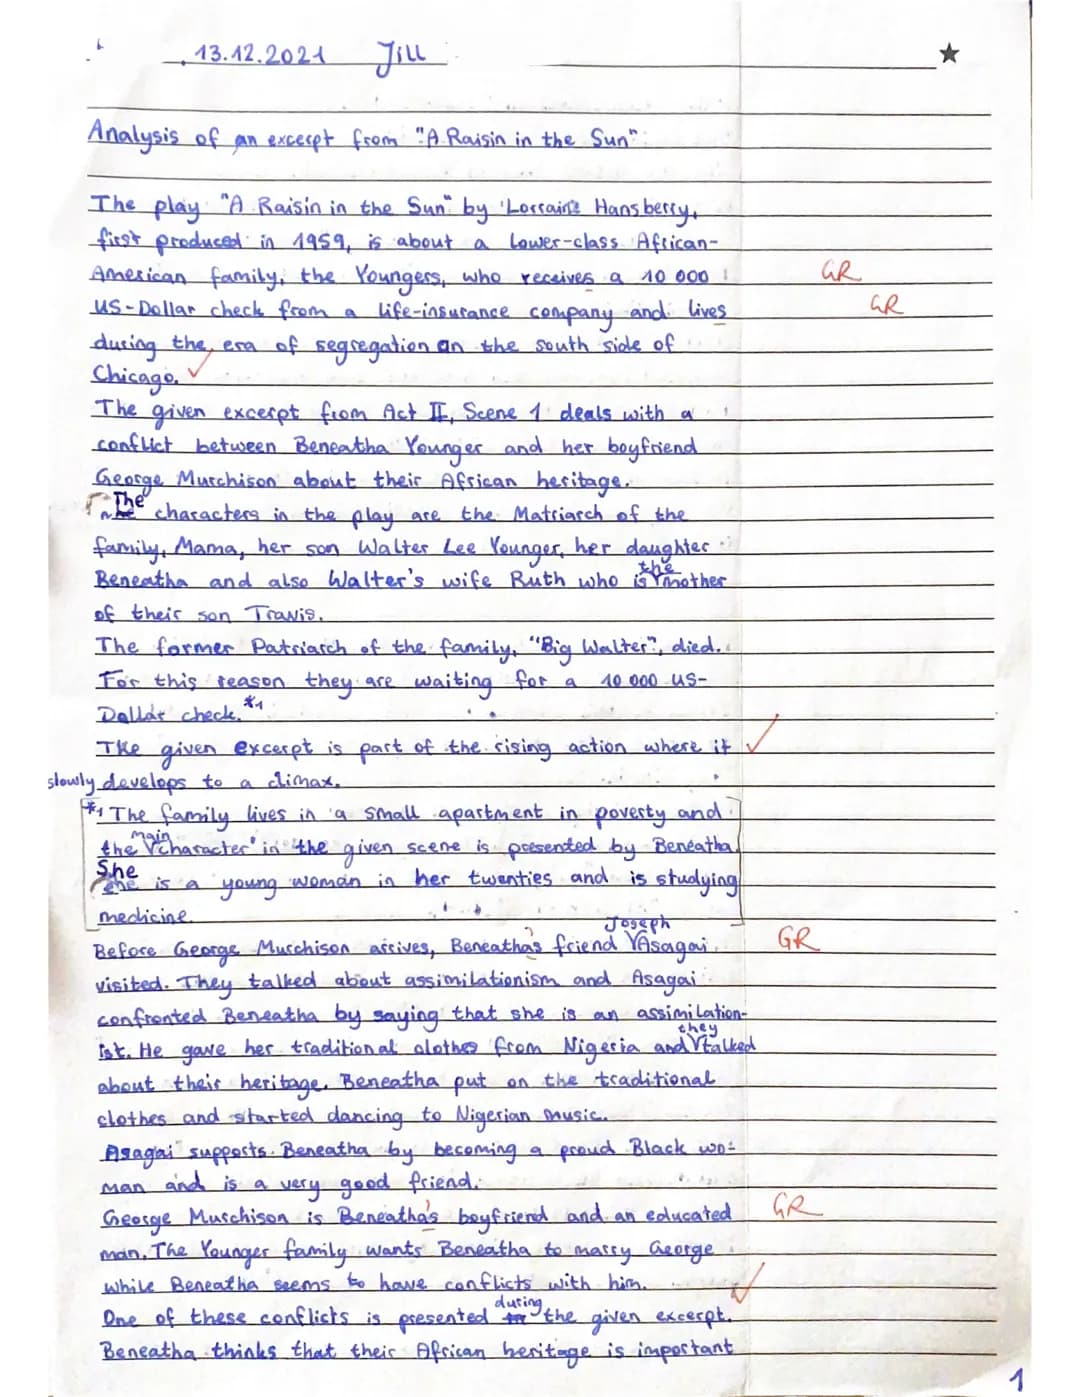 13.12.2021 Jill
Analysis of an excerpt from "A Raisin in the Sun"
The play "A Raisin in the Sun" by Lorraine Hansberry,
first produced in 1959, is about a lower-class African-
American family, the Youngers, who receives a 10 000 GR
US-Dollar check from a life-insurance company and lives GR
during the era of segregation on the south side of
Chicago. ✓
The given excerpt from Act II, Scene 1 deals with a
conflict between Beneatha Younger and her boyfriend
George Murchison about their African heritage.
The characters in the play are the Matriarch of the
family, Mama, her son Walter Lee Younger, her daughter
Beneatha and also Walter's wife Ruth who is the mother
of their son Travis.
The former Patriarch of the family, "Big Walter", died.
For this reason they are waiting for a 10 000 US-
Dollar check. *1
The given excerpt is part of the rising action where it ✓
slowly develops to a climax.
*1 The family lives in a small apartment in poverty and
the main character in the given scene is presented by Beneatha.
She is a young woman in her twenties and is studying
medicine.
Before George Murchison arrives, Beneatha's friend Joseph Asagai GR
visited. They talked about assimilationism and Asagai
confronted Beneatha by saying that she is an assimilation-
ist. He gave her traditional clothes from Nigeria and they talked
about their heritage. Beneatha put on the traditional
clothes and started dancing to Nigerian music.
Asagai supports Beneatha by becoming a proud Black wo-
man and is a very good friend.
George Murchison is Beneatha's boyfriend and an educated GR
man. The Younger family wants Beneatha to marry George
while Beneatha seems to have conflicts with him. ✓
One of these conflicts is presented during the given excerpt.
Beneatha thinks that their African heritage is important
1